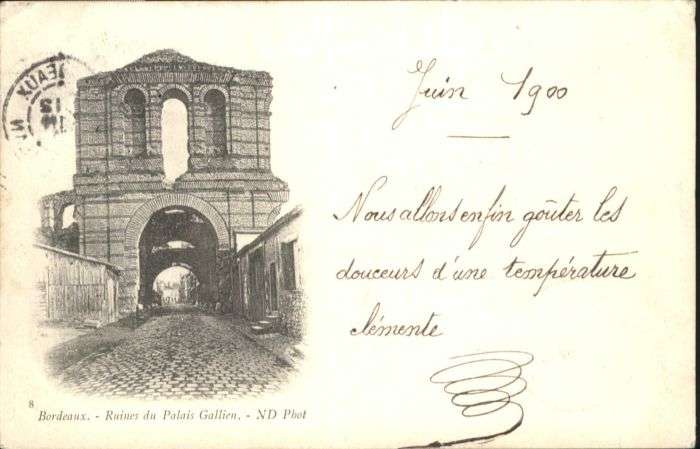 Juin 1900
Nous allons enfin goûter les
douceurs d'une température
clémente
EAUX
13
8
Bordeaux. - Ruines du Palais Gallien. - ND Phot